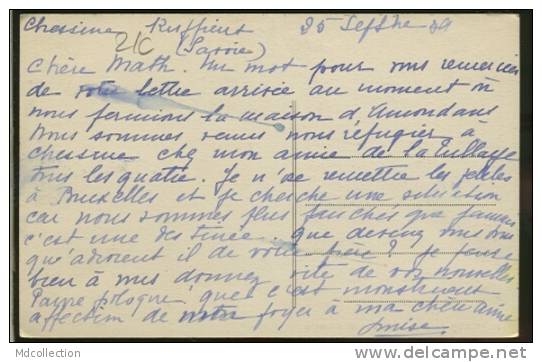 Chessine Ruffieux 25 Septbre 39
21C (Savoie)
Chère Math. Un mot pour vous remercier
de votre lettre arrivée au moment où
nous fermions la maison d'Amondans
Nous sommes venus nous réfugier à
Chessine chez mon amie de la
tous les quatre. Je n'ose remettre les pieds
à Bruxelles et je cherche une situation
car nous sommes plus fauchés que jamais
c'est une destinée.. que devenez vous tous
qu'advient il de votre frère? Je pense
bien à vous donnez vite de vos nouvelles
Pauvre Pologne, que c'est monstrueux
affection de notre foyer à ma chère amie
Louise.
MDcollection
www.delcampe.net